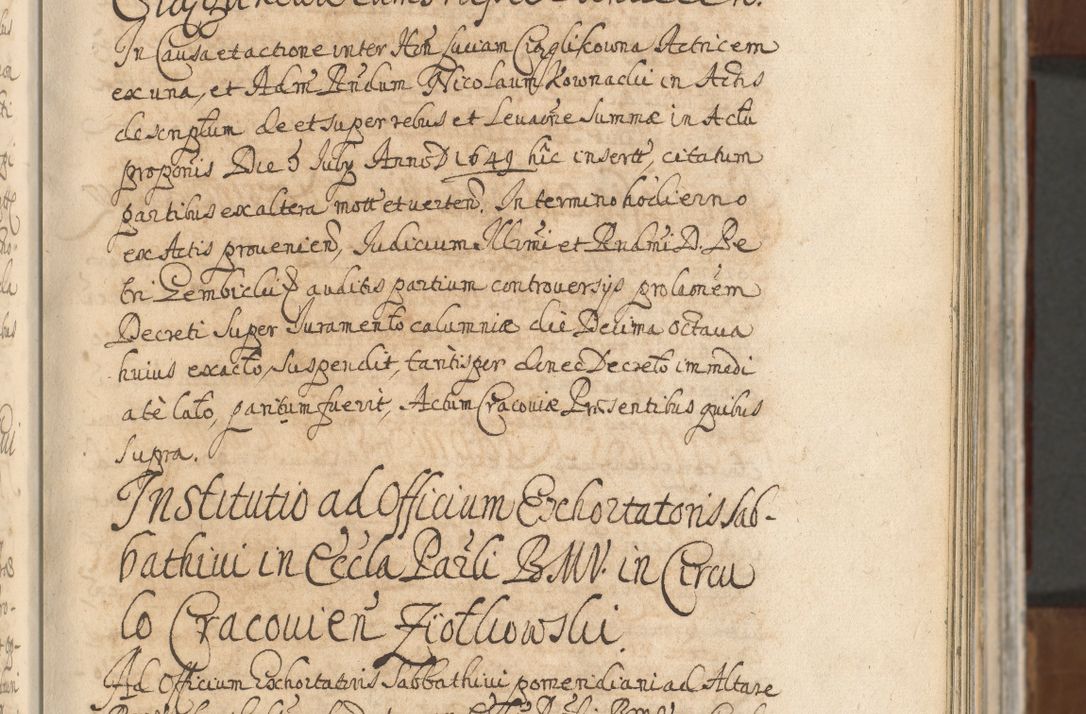 In Causa et actione inter Hon Luciam Cięglikowna Actricem
ex una, et Adm Rndum Nicolaum Kownacki in Actis
descriptum de et super rebus et Levaone Summæ in Actu
proponis Die 5 July Anno D 1649 hic insertt, citatum
partibus ex altera mott et verten. In termino hodierno
ex Actis provenien, Judicium Illrmi et Rndmi D. Pe
tri Gembicki auditis partium controversijs prolaonem
Decreti Super Juramento calumniæ die Decima octava
huius exacto, Suspendit, tantisper donec Decreto immedi
atè lato, paritum fuerit, Actum Cracoviæ Præsentibus quibus
supra.
Institutio ad Officium Exhortatoris Sab-
bathivi in Eccla Parli BMV. in Circu
lo Cracovien Ziołkowski.
Ad Officium Exhortatoris Sabbathivi pomeridiani ad Altare